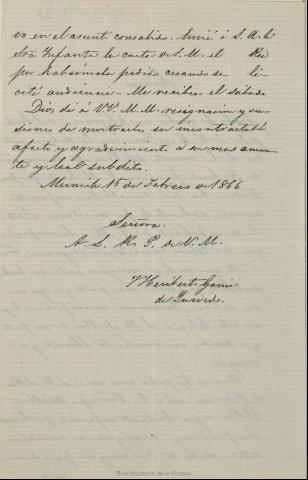 vo en el asunto consabido. Envié á S. A. la
Sra Infanta la carta de S. M. el Rey
por habérmela pedido cuando so li-
cité audiencia - Me recibió el sabado.
Dios dé á VV. M.M. resignacion y oca
siones de mostrarles su incontrastable
afecto y agradecimiento á su mas aman
te y leal subdito.
Munich 15 de Febrero de 1866
Señora.
A. L. R. P. de V. M.
Heriberto Garcia
de Quevedo.
Real Academia de la Historia